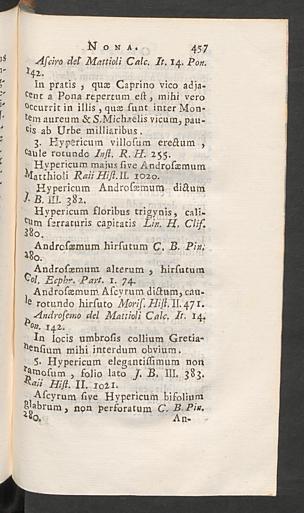 NONA. 457
Aſciro del Mattioli Calc. It. 14. Pon.
142.
In pratis, quæ Caprino vico adja-
cent a Pona repertum eſt, mihi vero
occurrit in illis, quæ ſunt inter Mon-
tem aureum & S. Michaelis vicum, pau-
cis ab Urbe milliaribus.
3. Hypericum villoſum erectum,
caule rotundo Inſt. R. H. 255.
Hypericum majus ſive Androſæmum
Matthioli Raii Hiſt. II. 1020.
Hypericum Androſæmum dictum
J. B. III. 382.
Hypericum floribus trigynis, cali-
cum ſerraturis capitatis Lin. H. Clif.
380.
Androſæmum hirſutum C. B. Pin.
280.
Androſæmum alterum, hirſutum
Col. Ecphr. Part. 1. 74.
Androſæmum Aſcyrum dictum, cau-
le rotundo hirſuto Moriſ. Hiſt. II. 471.
Androſemo del Mattioli Calc. It. 14.
Pon. 142.
In locis umbroſis collium Gretia-
nenſium mihi interdum obvium.
5. Hypericum elegantiſſimum non
ramoſum, folio lato J. B. III. 383.
Raii Hiſt. II. 1021.
Aſcyrum ſive Hypericum bifolium
glabrum, non perforatum C. B. Pin.
280.
An-